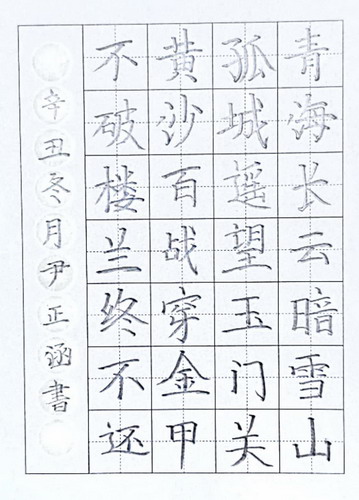 青海长云暗雪山
孤城遥望玉门关
黄沙百战穿金甲
不破楼兰终不还
辛丑冬月尹正涵書